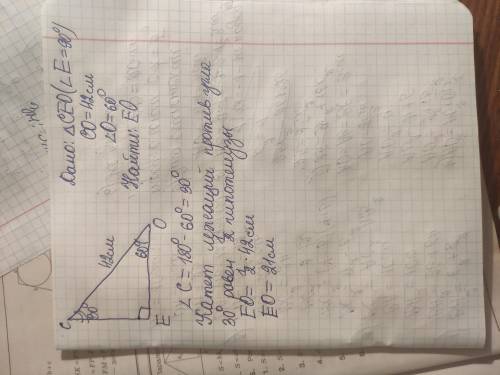 Дано: △CEO (∠E = 90°)
CO = 42см
∠O = 60°
Найти: EO
C
42см
60°
30°
O
E
∠C = 180° - 60° = 30°
Катет лежащий против угла
30° равен ½ гипотенузы
EO = ½ · 42см
EO = 21см